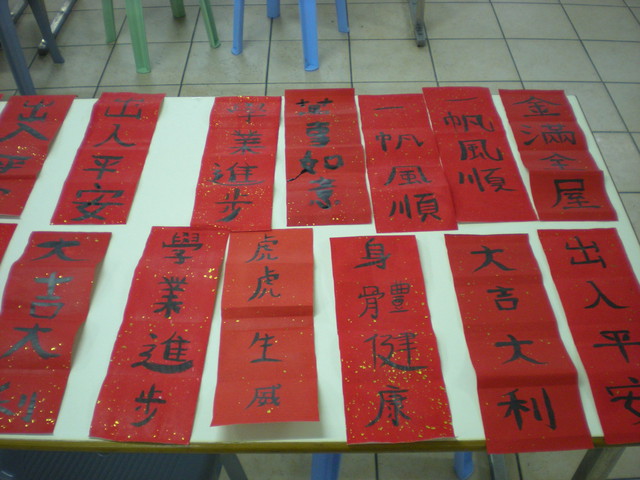 出入平
出入平安
學業進步
萬事如意
一帆風順
一帆風順
金滿全屋
大吉大利
學業進步
虎虎生威
身體健康
大吉大利
出入平安